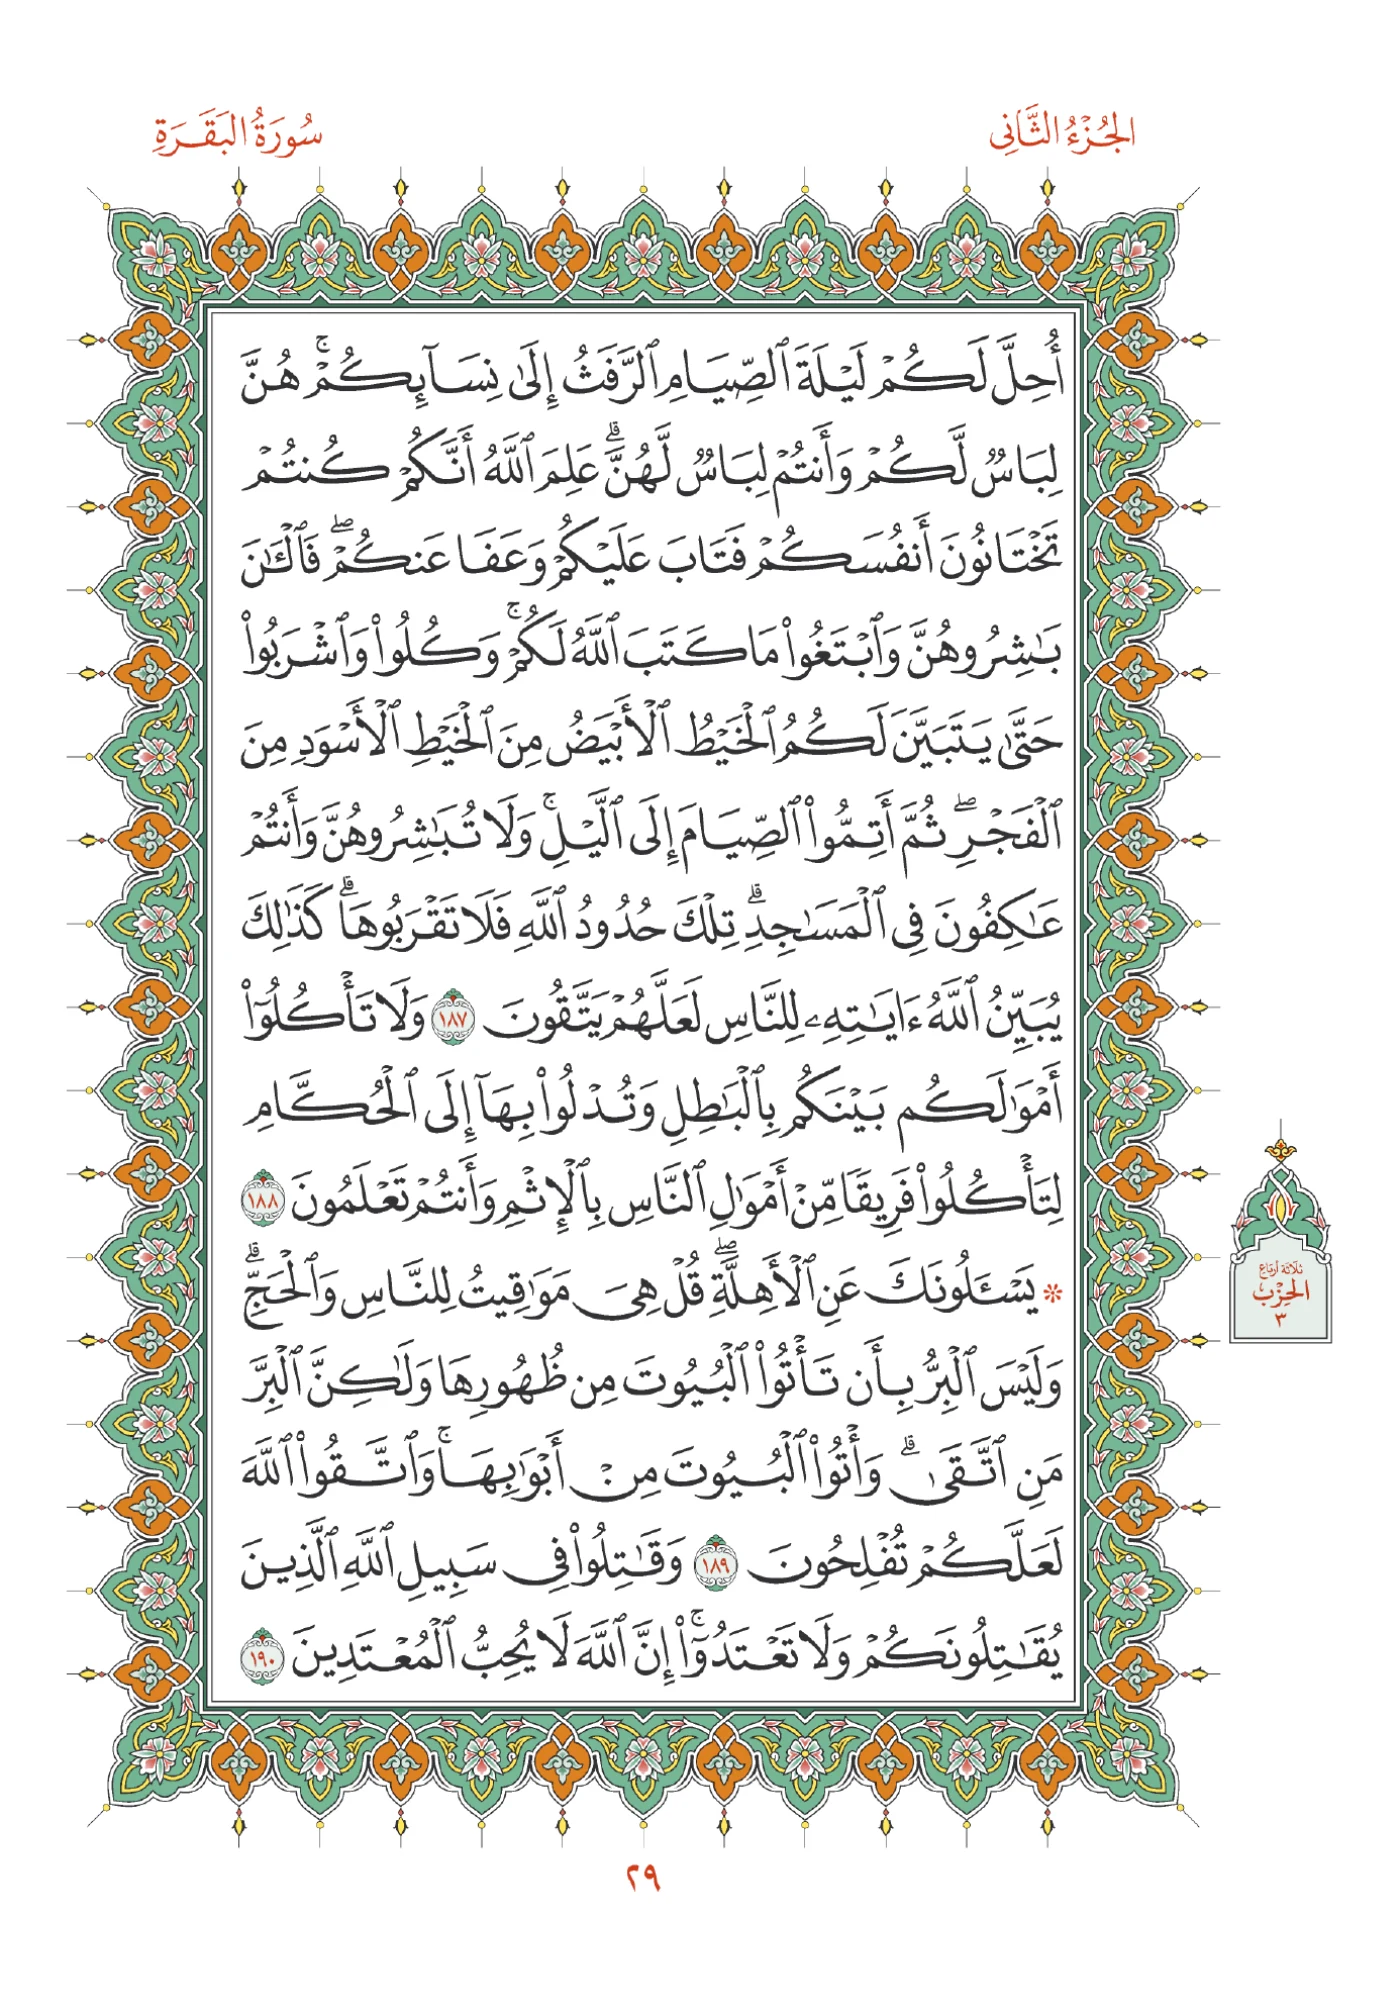 الجُزْءُ الثَّانِي
سُورَةُ البَقَرَةِ
أُحِلَّ لَكُمْ لَيْلَةَ ٱلصِّيَامِ ٱلرَّفَثُ إِلَىٰ نِسَآئِكُمْۚ هُنَّ
لِبَاسٌ لَّكُمْ وَأَنتُمْ لِبَاسٌ لَّهُنَّۗ عَلِمَ ٱللَّهُ أَنَّكُمْ كُنتُمْ
تَخْتَانُونَ أَنفُسَكُمْ فَتَابَ عَلَيْكُمْ وَعَفَا عَنكُمْۖ فَٱلْـَٰٔنَ
بَٰشِرُوهُنَّ وَٱبْتَغُوا۟ مَا كَتَبَ ٱللَّهُ لَكُمْۚ وَكُلُوا۟ وَٱشْرَبُوا۟
حَتَّىٰ يَتَبَيَّنَ لَكُمُ ٱلْخَيْطُ ٱلْأَبْيَضُ مِنَ ٱلْخَيْطِ ٱلْأَسْوَدِ مِنَ
ٱلْفَجْرِۖ ثُمَّ أَتِمُّوا۟ ٱلصِّيَامَ إِلَى ٱلَّيْلِۚ وَلَا تُبَٰشِرُوهُنَّ وَأَنتُمْ
عَٰكِفُونَ فِى ٱلْمَسَٰجِدِۗ تِلْكَ حُدُودُ ٱللَّهِ فَلَا تَقْرَبُوهَاۗ كَذَٰلِكَ
يُبَيِّنُ ٱللَّهُ ءَايَٰتِهِۦ لِلنَّاسِ لَعَلَّهُمْ يَتَّقُونَ ١٨٧ وَلَا تَأْكُلُوٓا۟
أَمْوَٰلَكُم بَيْنَكُم بِٱلْبَٰطِلِ وَتُدْلُوا۟ بِهَآ إِلَى ٱلْحُكَّامِ
لِتَأْكُلُوا۟ فَرِيقًا مِّنْ أَمْوَٰلِ ٱلنَّاسِ بِٱلْإِثْمِ وَأَنتُمْ تَعْلَمُونَ ١٨٨
* يَسْـَٔلُونَكَ عَنِ ٱلْأَهِلَّةِۖ قُلْ هِىَ مَوَٰقِيتُ لِلنَّاسِ وَٱلْحَجِّۗ
وَلَيْسَ ٱلْبِرُّ بِأَن تَأْتُوا۟ ٱلْبُيُوتَ مِن ظُهُورِهَا وَلَٰكِنَّ ٱلْبِرَّ
مَنِ ٱتَّقَىٰۗ وَأْتُوا۟ ٱلْبُيُوتَ مِنْ أَبْوَٰبِهَاۚ وَٱتَّقُوا۟ ٱللَّهَ
لَعَلَّكُمْ تُفْلِحُونَ ١٨٩ وَقَٰتِلُوا۟ فِى سَبِيلِ ٱللَّهِ ٱلَّذِينَ
يُقَٰتِلُونَكُمْ وَلَا تَعْتَدُوٓا۟ۚ إِنَّ ٱللَّهَ لَا يُحِبُّ ٱلْمُعْتَدِينَ ١٩٠
ثلاثة أرباع
الحزب
٣
٢٩